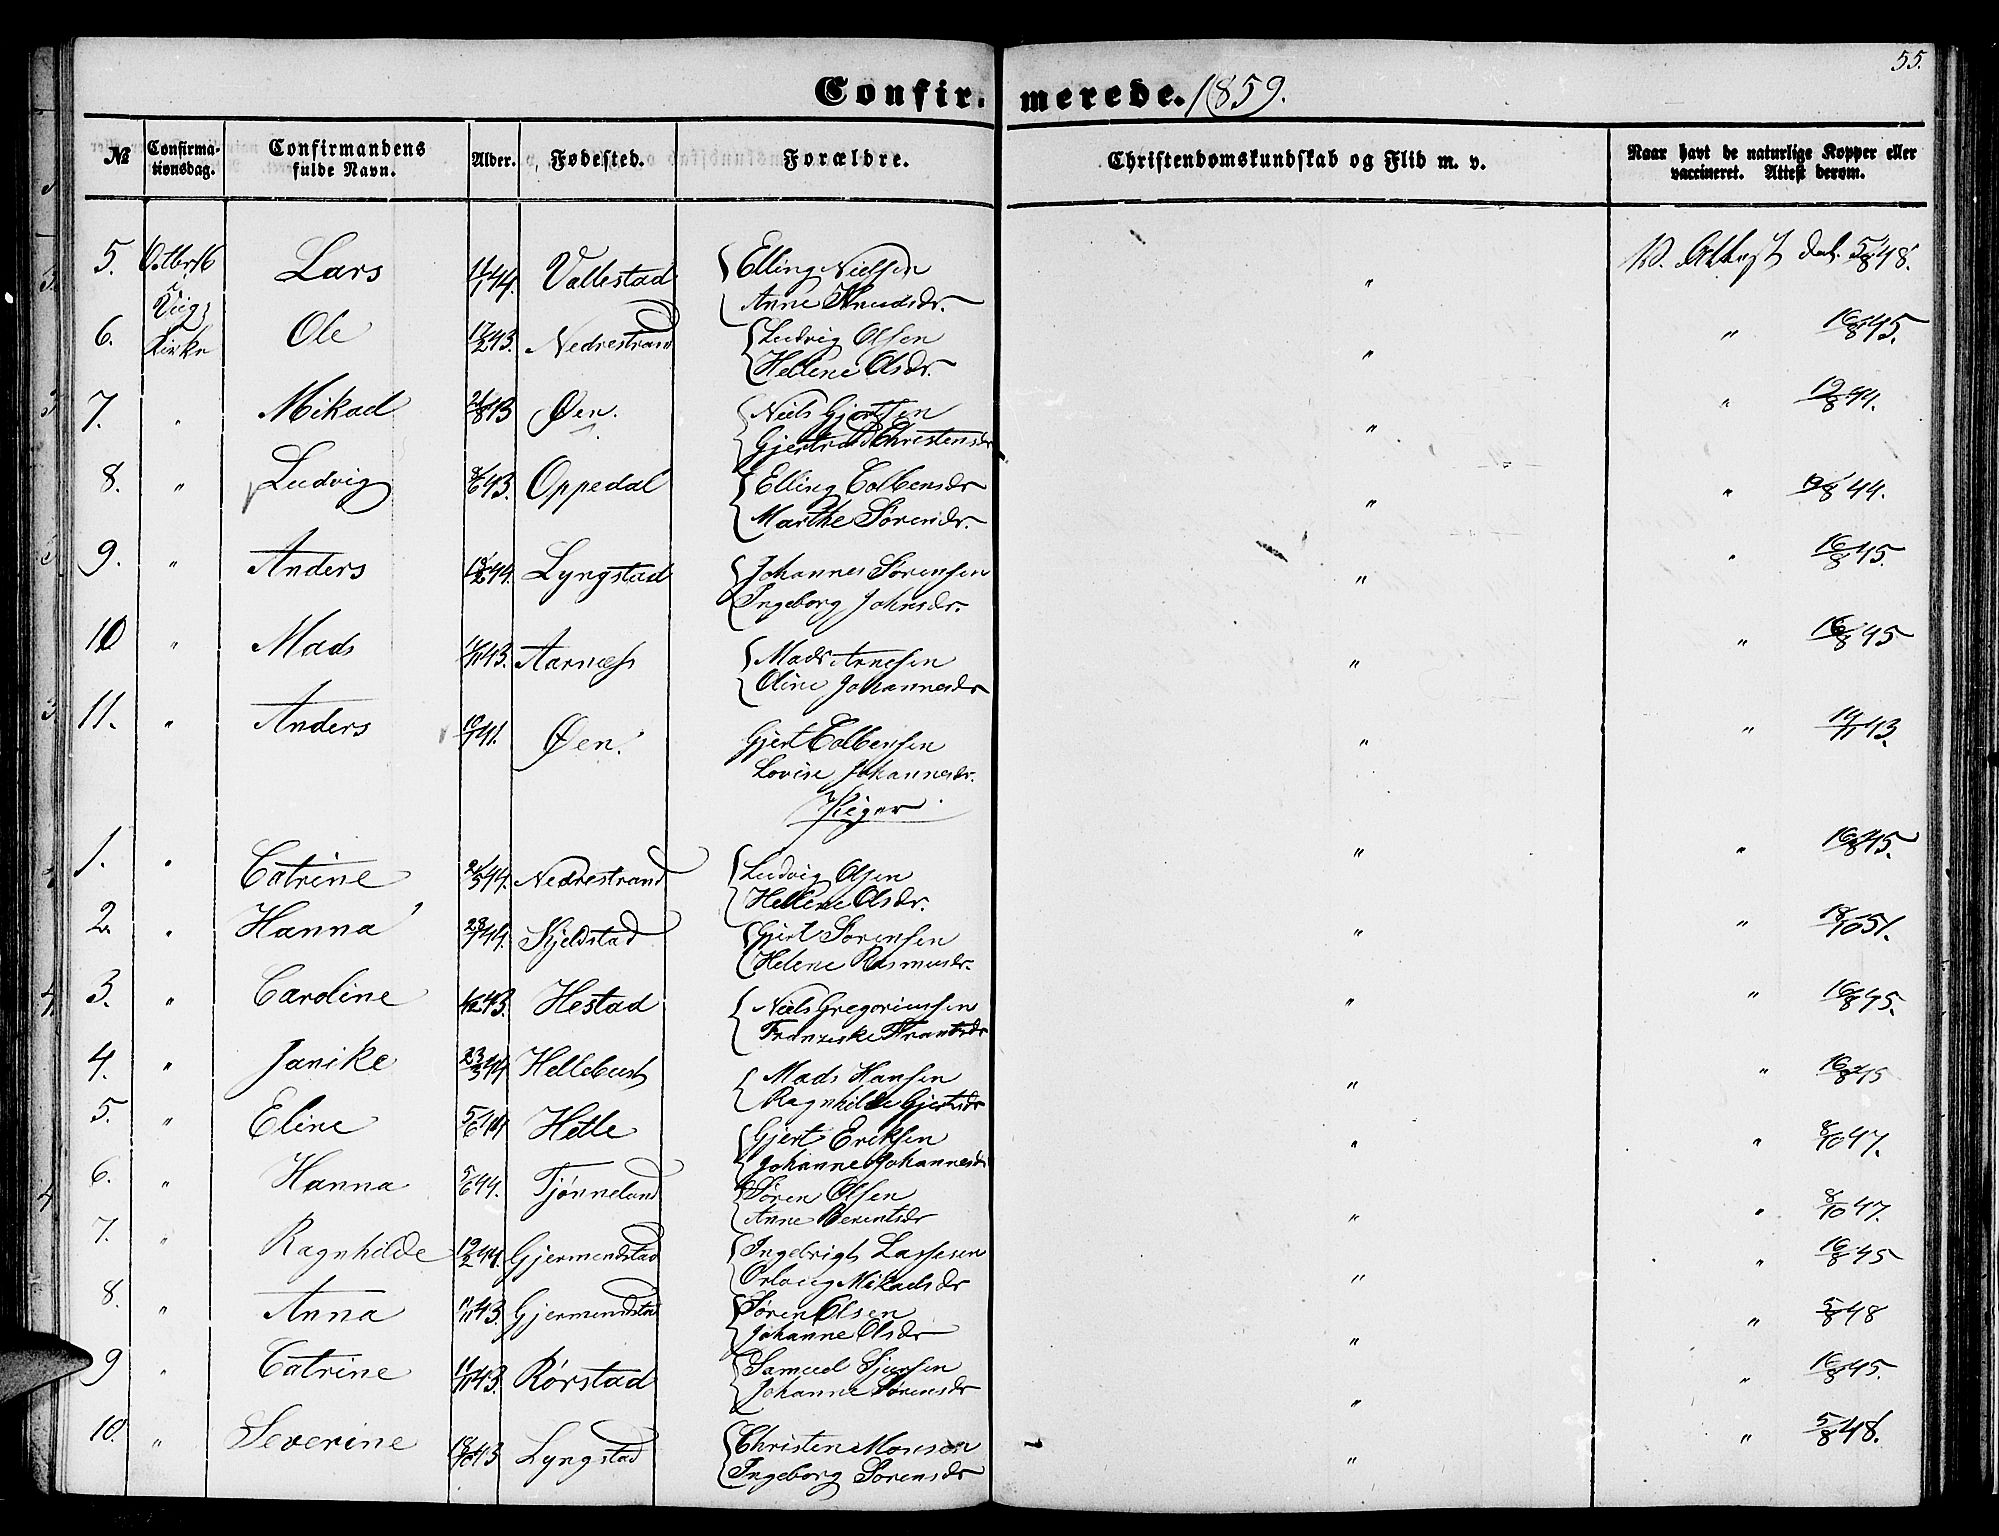 55.
Confir- merede. 1859.
№ Confirma-tionsdag. Confirmandens fulde Navn. Alder. Fødested. Forældre. Christendomskundskab og Flid m. v. Naar havt de naturlige Kopper eller vaccineret. Attest derom.
5. Octbr 16 Lars 44. Vallestad Elling Nielsen " V. Attest dat. 5/8 48.
Viigs Anne Knudsdr.
6. Kirke Ole 43. Nedrestrand Ludvig Olsen " " 16/8 45.
Hellene Olsdr.
7. " Mikael 43 Øen. Niels Gjertsen " " 12/8 44.
Gjertrud Christensdr
8. " Ludvig 43. Oppedal Elling Colbensdr " " 12/8 44.
Marthe Sørensdr.
9. " Anders 44. Lyngstad Johannes Sørensen " " 16/8 45.
Ingeborg Johnsdr.
10 " Mads 43. Aarnæss Mads Arnesen " " 16/8 45
Oline Johannesdr
11. " Anders 41. Øen. Gjert Colbensen " " 43.
Lovise Johannesdr.
Piger
1. " Catrine 44. Nedrestrand Ludvig Olsen " " 16/8 45.
Hellene Olsdr.
2. " Hanna 44. Skjeldstad Gjert Sørensen " " 18/10 51.
Helene Rasmusdr.
3. " Caroline 43. Hestad Niels Gregoriussen " " 16/8 45.
Franziske Frantsdr
4. " Janike 23/3 44 Hellebust Mads Hansen " " 16/8 45
Ragnhilde Gjertsdr
5. " Eline 5/6 44 Helle Gjert Eriksen " " 8/10 47.
Johanne Johannesdr
6. " Hanna 5/6 44. Tjønneland Søren Olsen " " 8/10 47.
Anne Berentsdr
7. " Ragnhilde 12/2 44. Gjermundstad Ingebrigt Lassesen " " 16/8 45
Orlaug Mikaelsdr
8. " Anna 43. Gjermundstad Søren Olsen " " 5/8 48
Johanne Olsdr
9 " Catrine 11/11 43. Rørstad Samuel Sjursen " " 16/8 45.
Johanne Sørensdr
10. " Severine 18/10 43 Lyngstad Christen Monsen " " 5/8 48.
Ingeborg Sørensdr